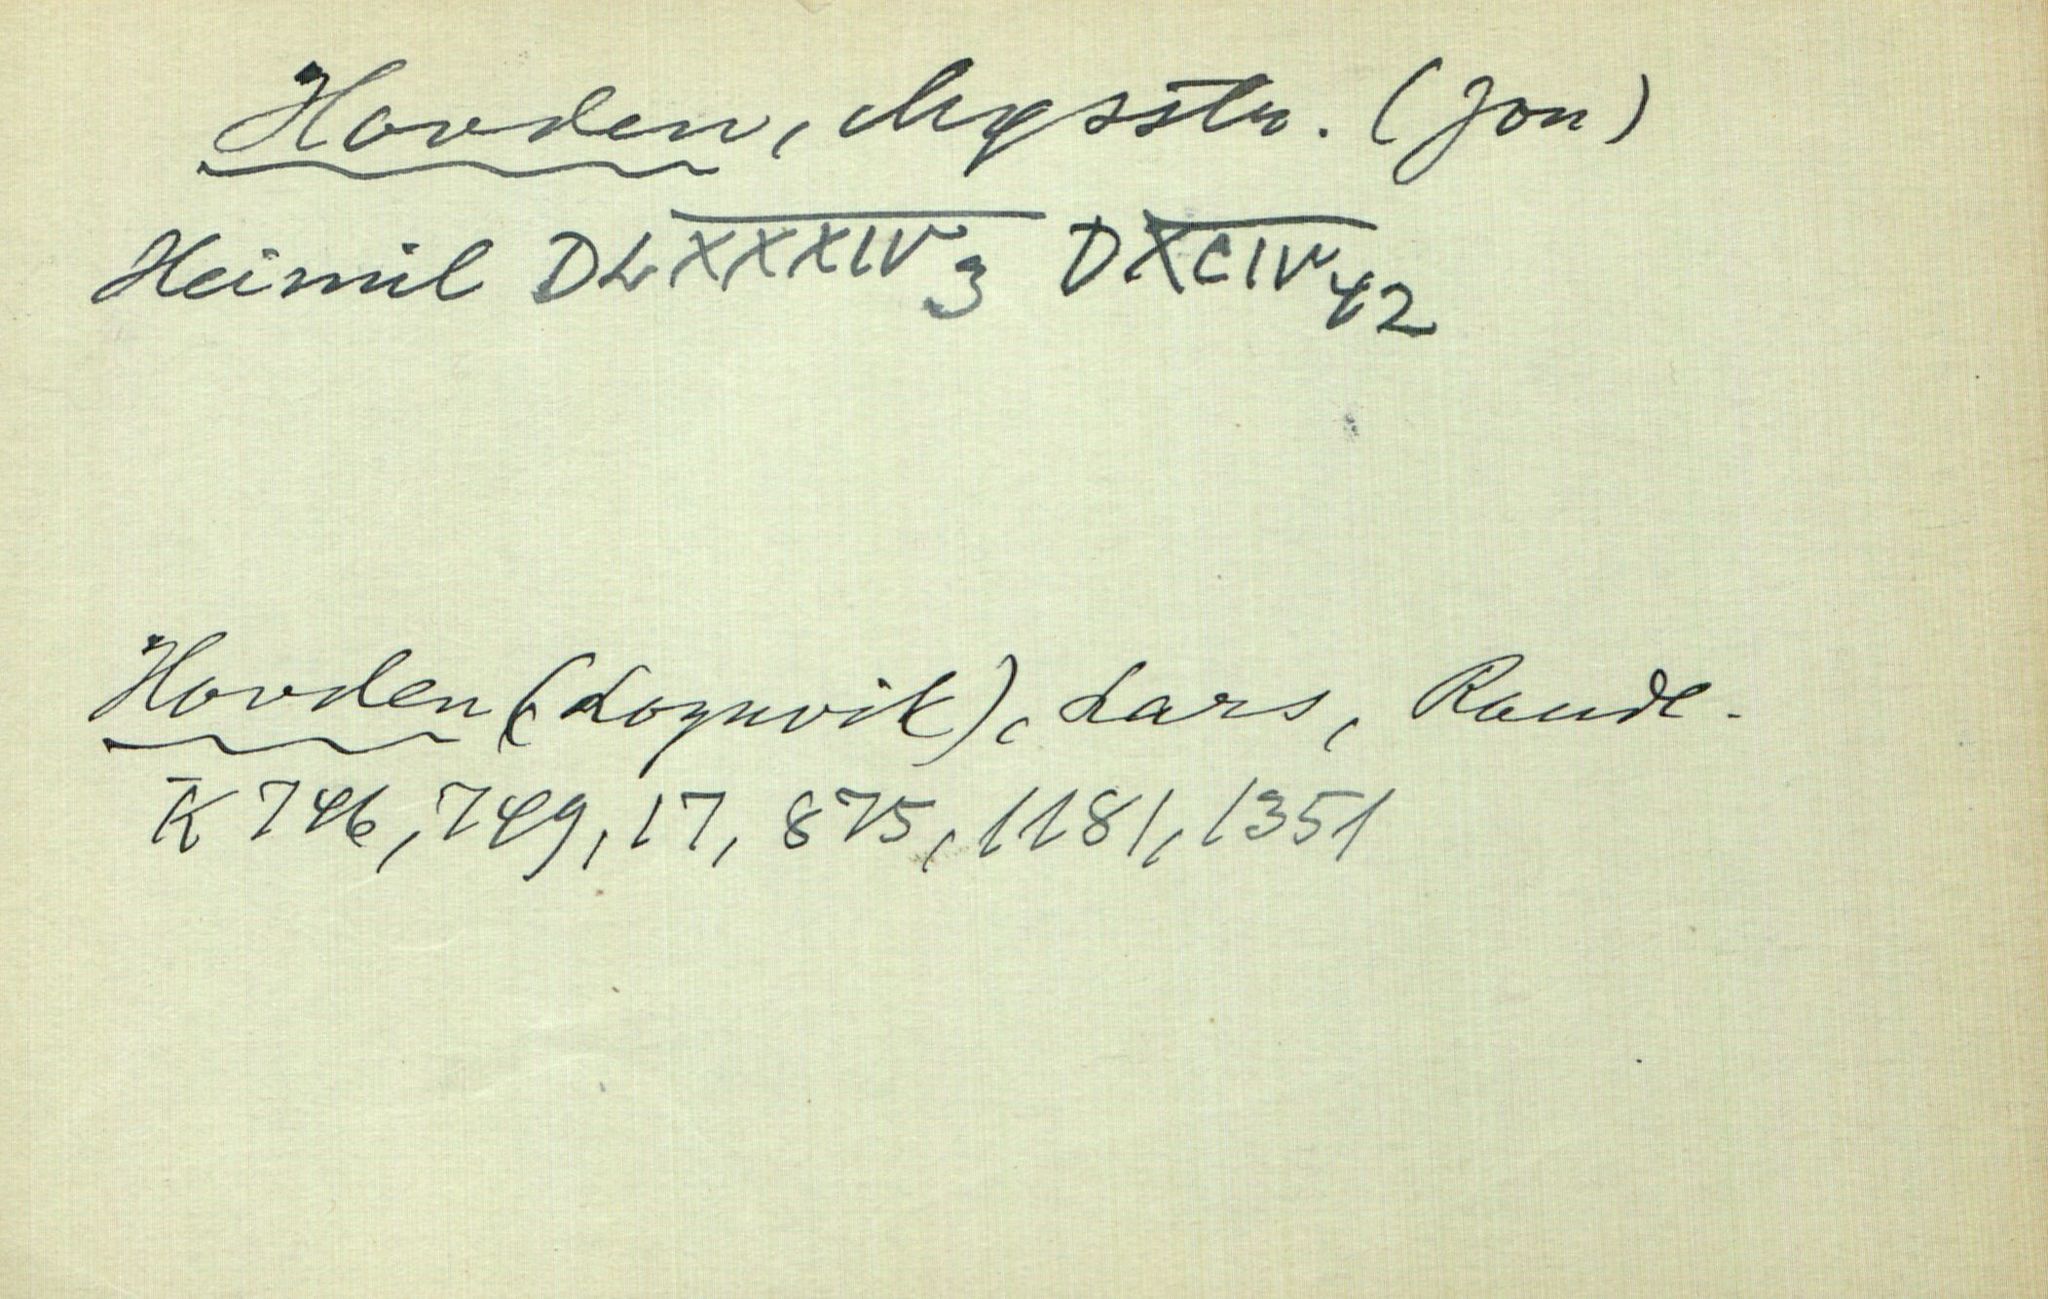 Hovden, Mgsstr. (Jon)
Heimil DLXXXIV 3 DXCIV 42
Hovden (Lognvik), Lars, Raudl.
K 746, 749, 17, 875, 1181, 1351